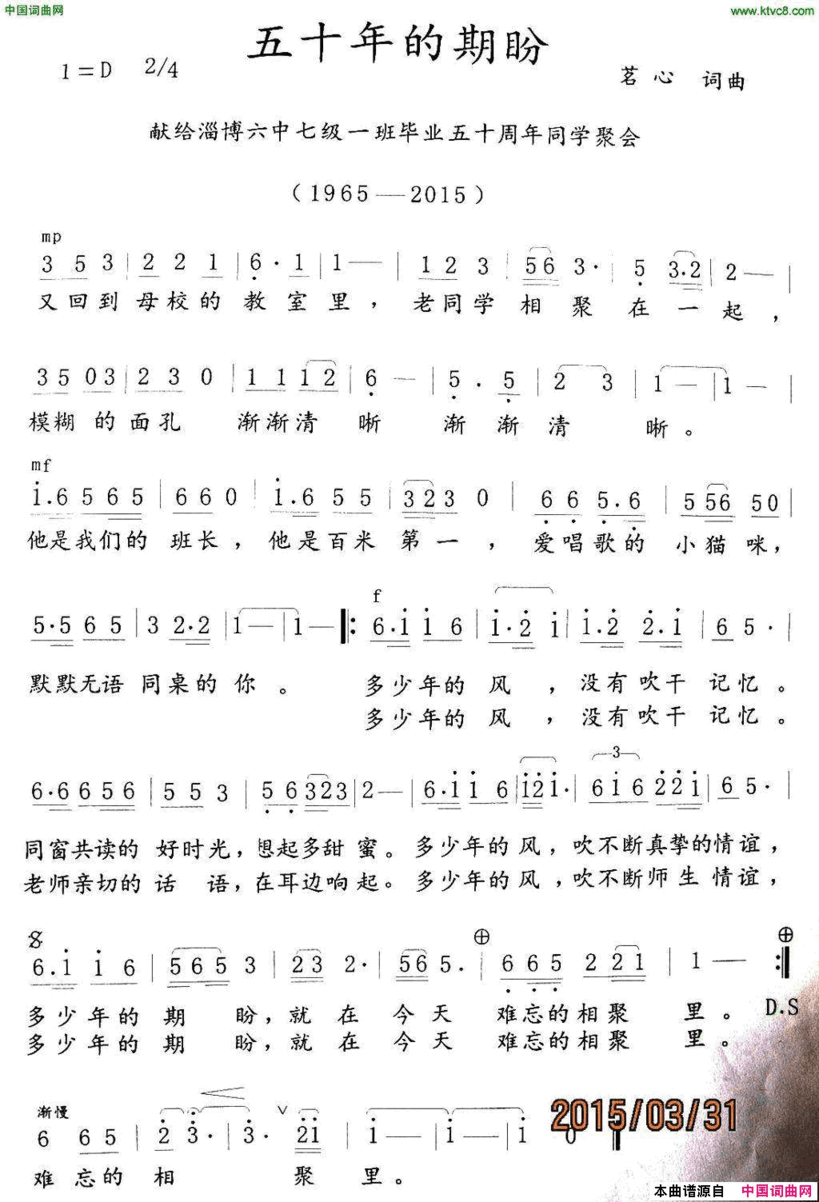 中国词曲网
www.ktvc8.com
五十年的期盼
1=D 2/4
茗心 词曲
献给淄博六中七级一班毕业五十周年同学聚会
(1965—2015)
mp
3 5 3 | 2 2 1 | 6· 1 | 1— | 1 2 3 | 56 3· | 5 3·2 | 2— |
又回到 母校的 教室里，老同学 相聚在一起，
35 03 | 2 3 0 | 1 1 12 | 6 — | 5 . 5 | 2 3 | 1— | 1— |
模糊的面孔 渐渐清晰 渐渐清晰。
mf
1.6 5 65 | 6 6 0 | 1.6 5 5 | 323 0 | 6 6 5.6 | 5 56 50 |
他是我们的 班长，他是百米 第一，爱唱歌的 小猫咪，
f
5·5 6 5 | 3 2·2 | 1— | 1— |: 6·1 1 6 | 1·2 1 | 1.2 2.1 | 6 5· |
默默无语 同桌的 你。 多少年的 风，没有吹干 记忆。
多少年的 风，没有吹干 记忆。
3
6·6 6 56 | 5 5 3 | 5 6 323 | 2— | 6·1 1 6 | 121· | 616 221 | 6 5· |
同窗共读的 好时光，想起多甜 蜜。多少年的风，吹不断真挚的情谊，
老师亲切的 话 语，在耳边响 起。多少年的风，吹不断师生 情谊，
6.1 1 6 | 565 3 | 23 2· | 56 5. | 6 65 2 21 | 1 — :|
多少年的 期 盼，就在 今天 难忘的相聚 里。 D.S
多少年的 期 盼，就在 今天 难忘的相聚 里。
渐慢
6 6 5 | 2 3· | 3· 21 | 1— | 1— | 1 0 |
难忘的 相 聚里。
2015/03/31
本曲谱源自 中国词曲网